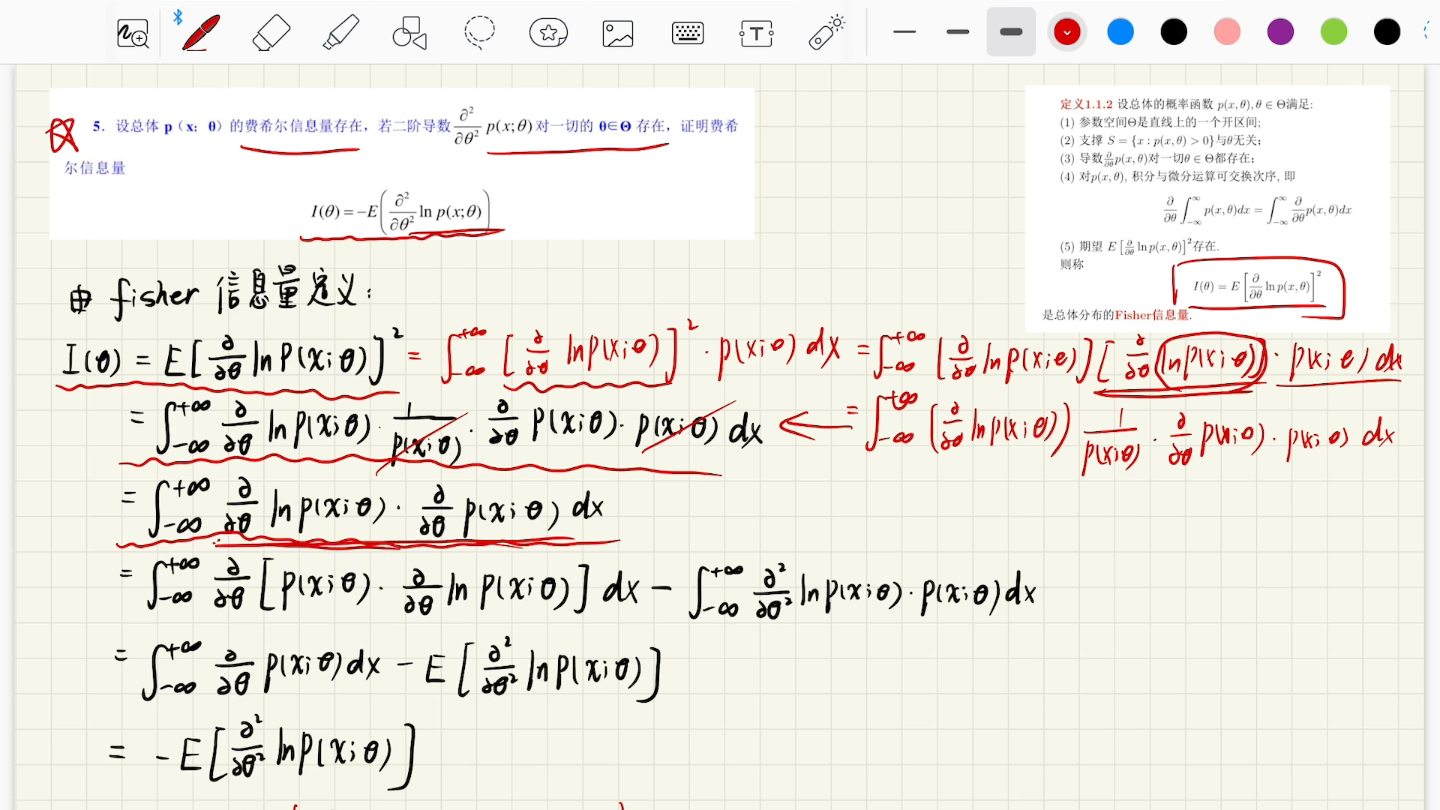 5. 设总体 p（x；θ）的费希尔信息量存在，若二阶导数 ∂²/∂θ² p(x;θ) 对一切的 θ∈Θ 存在，证明费希
尔信息量
I(θ) = -E(∂²/∂θ² ln p(x;θ))
定义1.1.2 设总体的概率函数 p(x,θ), θ ∈ Θ满足:
(1) 参数空间Θ是直线上的一个开区间;
(2) 支撑 S = {x : p(x,θ) > 0}与θ无关;
(3) 导数 ∂/∂θ p(x,θ)对一切θ ∈ Θ都存在;
(4) 对p(x,θ), 积分与微分运算可交换次序, 即
∂/∂θ ∫_{-∞}^{∞} p(x,θ)dx = ∫_{-∞}^{∞} ∂/∂θ p(x,θ)dx
(5) 期望 E[∂/∂θ ln p(x,θ)]²存在.
则称
I(θ) = E[∂/∂θ ln p(x,θ)]²
是总体分布的Fisher信息量.
由 fisher 信息量定义：
I(θ) = E[∂/∂θ ln P(x;θ)]² = ∫_{-∞}^{+∞} [∂/∂θ ln P(x;θ)]² · p(x;θ) dx = ∫_{-∞}^{+∞} [∂/∂θ ln p(x;θ)][∂/∂θ (ln p(x;θ))] · p(x;θ) dx
= ∫_{-∞}^{+∞} ∂/∂θ ln P(x;θ) · 1/p(x;θ) · ∂/∂θ P(x;θ) · p(x;θ) dx ← = ∫_{-∞}^{+∞} (∂/∂θ ln p(x;θ)) 1/p(x;θ) · ∂/∂θ p(x;θ) · p(x;θ) dx
= ∫_{-∞}^{+∞} ∂/∂θ ln p(x;θ) · ∂/∂θ p(x;θ) dx
= ∫_{-∞}^{+∞} ∂/∂θ [p(x;θ) · ∂/∂θ ln P(x;θ)] dx - ∫_{-∞}^{+∞} ∂²/∂θ² ln p(x;θ) · p(x;θ) dx
= ∫_{-∞}^{+∞} ∂/∂θ p(x;θ) dx - E[∂²/∂θ² ln P(x;θ)]
= -E[∂²/∂θ² ln P(x;θ)]